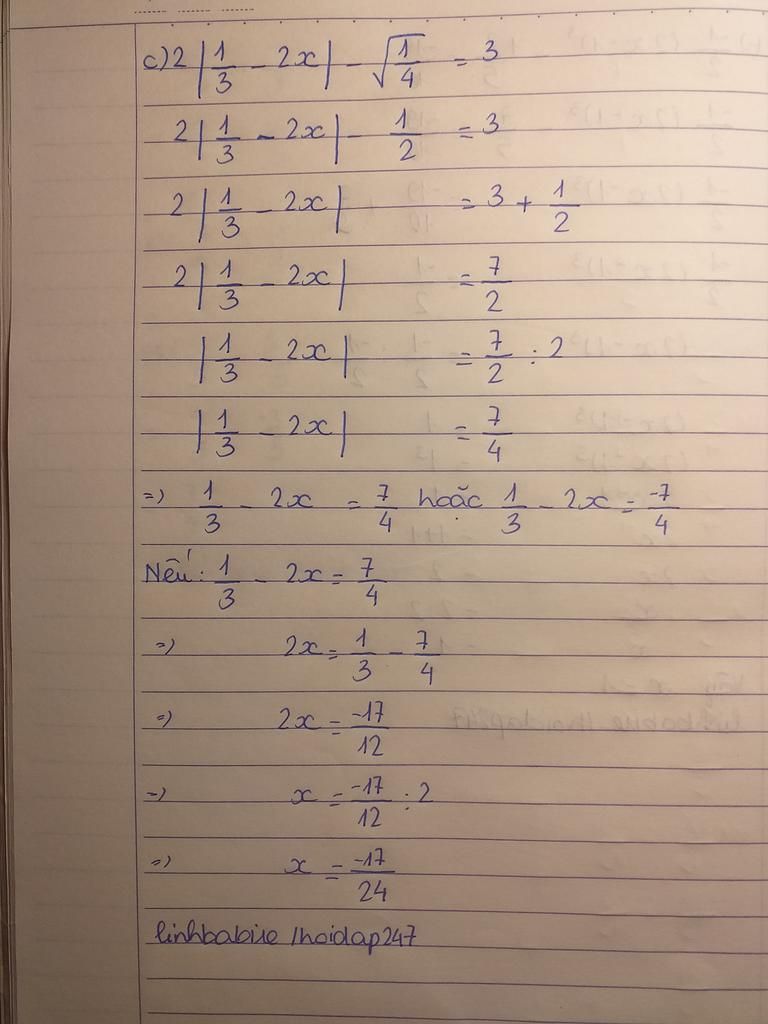 c) 2 |1/3 - 2x| - √(1/4) = 3
2 |1/3 - 2x| - 1/2 = 3
2 |1/3 - 2x| = 3 + 1/2
2 |1/3 - 2x| = 7/2
|1/3 - 2x| = 7/2 : 2
|1/3 - 2x| = 7/4
=) 1/3 - 2x = 7/4 hoặc 1/3 - 2x = -7/4
Nếu: 1/3 - 2x = 7/4
=) 2x = 1/3 - 7/4
=) 2x = -17/12
=) x = -17/12 : 2
=) x = -17/24
linhbabise /hoidap247